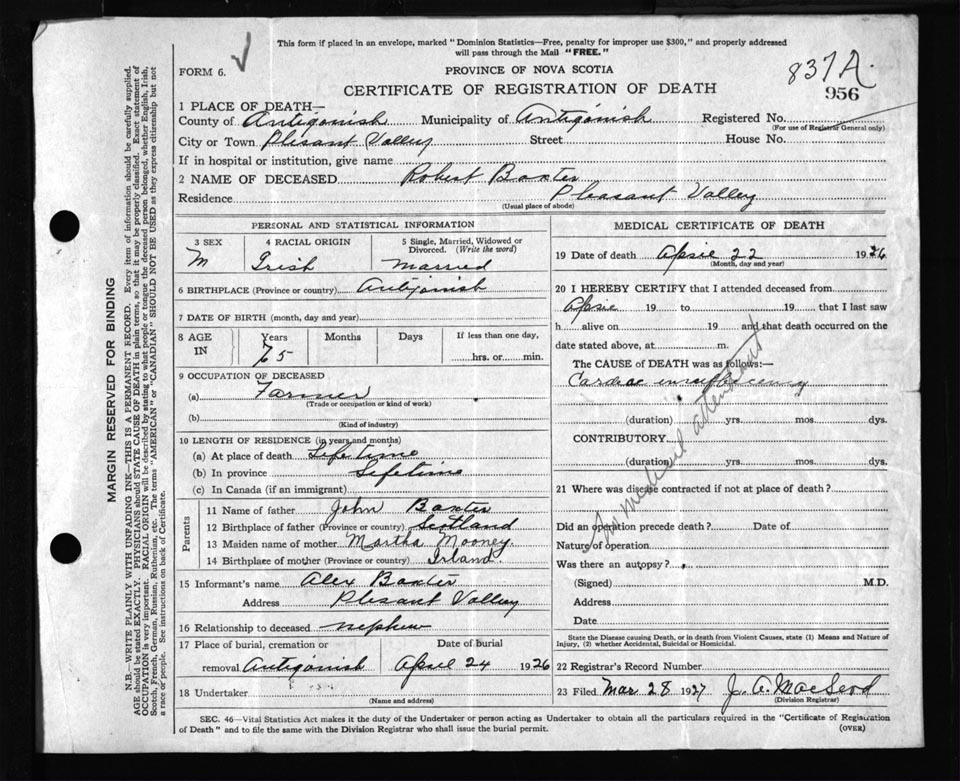 This form if placed in an envelope, marked "Dominion Statistics—Free, penalty for improper use $300," and properly addressed
will pass through the Mail "FREE."
FORM 6.
PROVINCE OF NOVA SCOTIA
837A.
CERTIFICATE OF REGISTRATION OF DEATH
956
1 PLACE OF DEATH—
County of Antigonish Municipality of Antigonish Registered No.
(For use of Registrar General only)
City or Town Plesant Valley Street House No.
If in hospital or institution, give name
2 NAME OF DECEASED Robert Baxter
Residence Pleasant Valley
(Usual place of abode)
PERSONAL AND STATISTICAL INFORMATION
3 SEX 4 RACIAL ORIGIN 5 Single, Married, Widowed or Divorced. (Write the word)
M Irish Married
6 BIRTHPLACE (Province or country) Antigonish
7 DATE OF BIRTH (month, day and year)
8 AGE IN Years Months Days If less than one day,
75 hrs. or min.
9 OCCUPATION OF DECEASED
(a) Farmer
(Trade or occupation or kind of work)
(b)
(Kind of industry)
10 LENGTH OF RESIDENCE (in years and months)
(a) At place of death Life time
(b) In province Lifetime
(c) In Canada (if an immigrant)
Parents
11 Name of father John Baxter
12 Birthplace of father (Province or country) Scotland
13 Maiden name of mother Martha Mooney
14 Birthplace of mother (Province or country) Irland.
15 Informant's name Alex Baxter
Address Plesant Valley
16 Relationship to deceased nephew
17 Place of burial, cremation or Date of burial
removal Antigonish April 24 1926
18 Undertaker
(Name and address)
MEDICAL CERTIFICATE OF DEATH
19 Date of death April 22 1926
(Month, day and year)
20 I HEREBY CERTIFY that I attended deceased from
April 19 to 19 that I last saw
h alive on 19 and that death occurred on the
date stated above, at m.
The CAUSE of DEATH was as follows:—
Cardiac insufficiency
(duration) yrs. mos. dys.
CONTRIBUTORY
(duration) yrs. mos. dys.
No medical attendant
21 Where was disease contracted if not at place of death?
Did an operation precede death? Date of
Nature of operation
Was there an autopsy?
(Signed) M.D.
Address
Date
State the Disease causing Death, or in death from Violent Causes, state (1) Means and Nature of
Injury, (2) whether Accidental, Suicidal or Homicidal.
22 Registrar's Record Number
23 Filed Mar 28 1927 J. A. MacLeod
(Division Registrar)
SEC. 46—Vital Statistics Act makes it the duty of the Undertaker or person acting as Undertaker to obtain all the particulars required in the "Certificate of Registration
of Death" and to file the same with the Division Registrar who shall issue the burial permit.
(OVER)
MARGIN RESERVED FOR BINDING
N.B.—WRITE PLAINLY WITH UNFADING INK—THIS IS A PERMANENT RECORD. Every item of information should be carefully supplied.
AGE should be stated EXACTLY. PHYSICIANS should STATE CAUSE OF DEATH in plain terms, so that it may be properly classified. Exact statement of
OCCUPATION is very important. RACIAL ORIGIN will be described by stating to what people or tongue the deceased person belonged, whether English, Irish,
Scotch, French, German, Russian, Ruthenian, etc. The terms "AMERICAN" or "CANADIAN" SHOULD NOT BE USED as they express citizenship but not
a race or people. See instructions on back of Certificate.